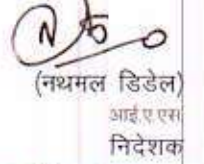 (नथमल डिडेल)
आई.ए.एस
निदेशक